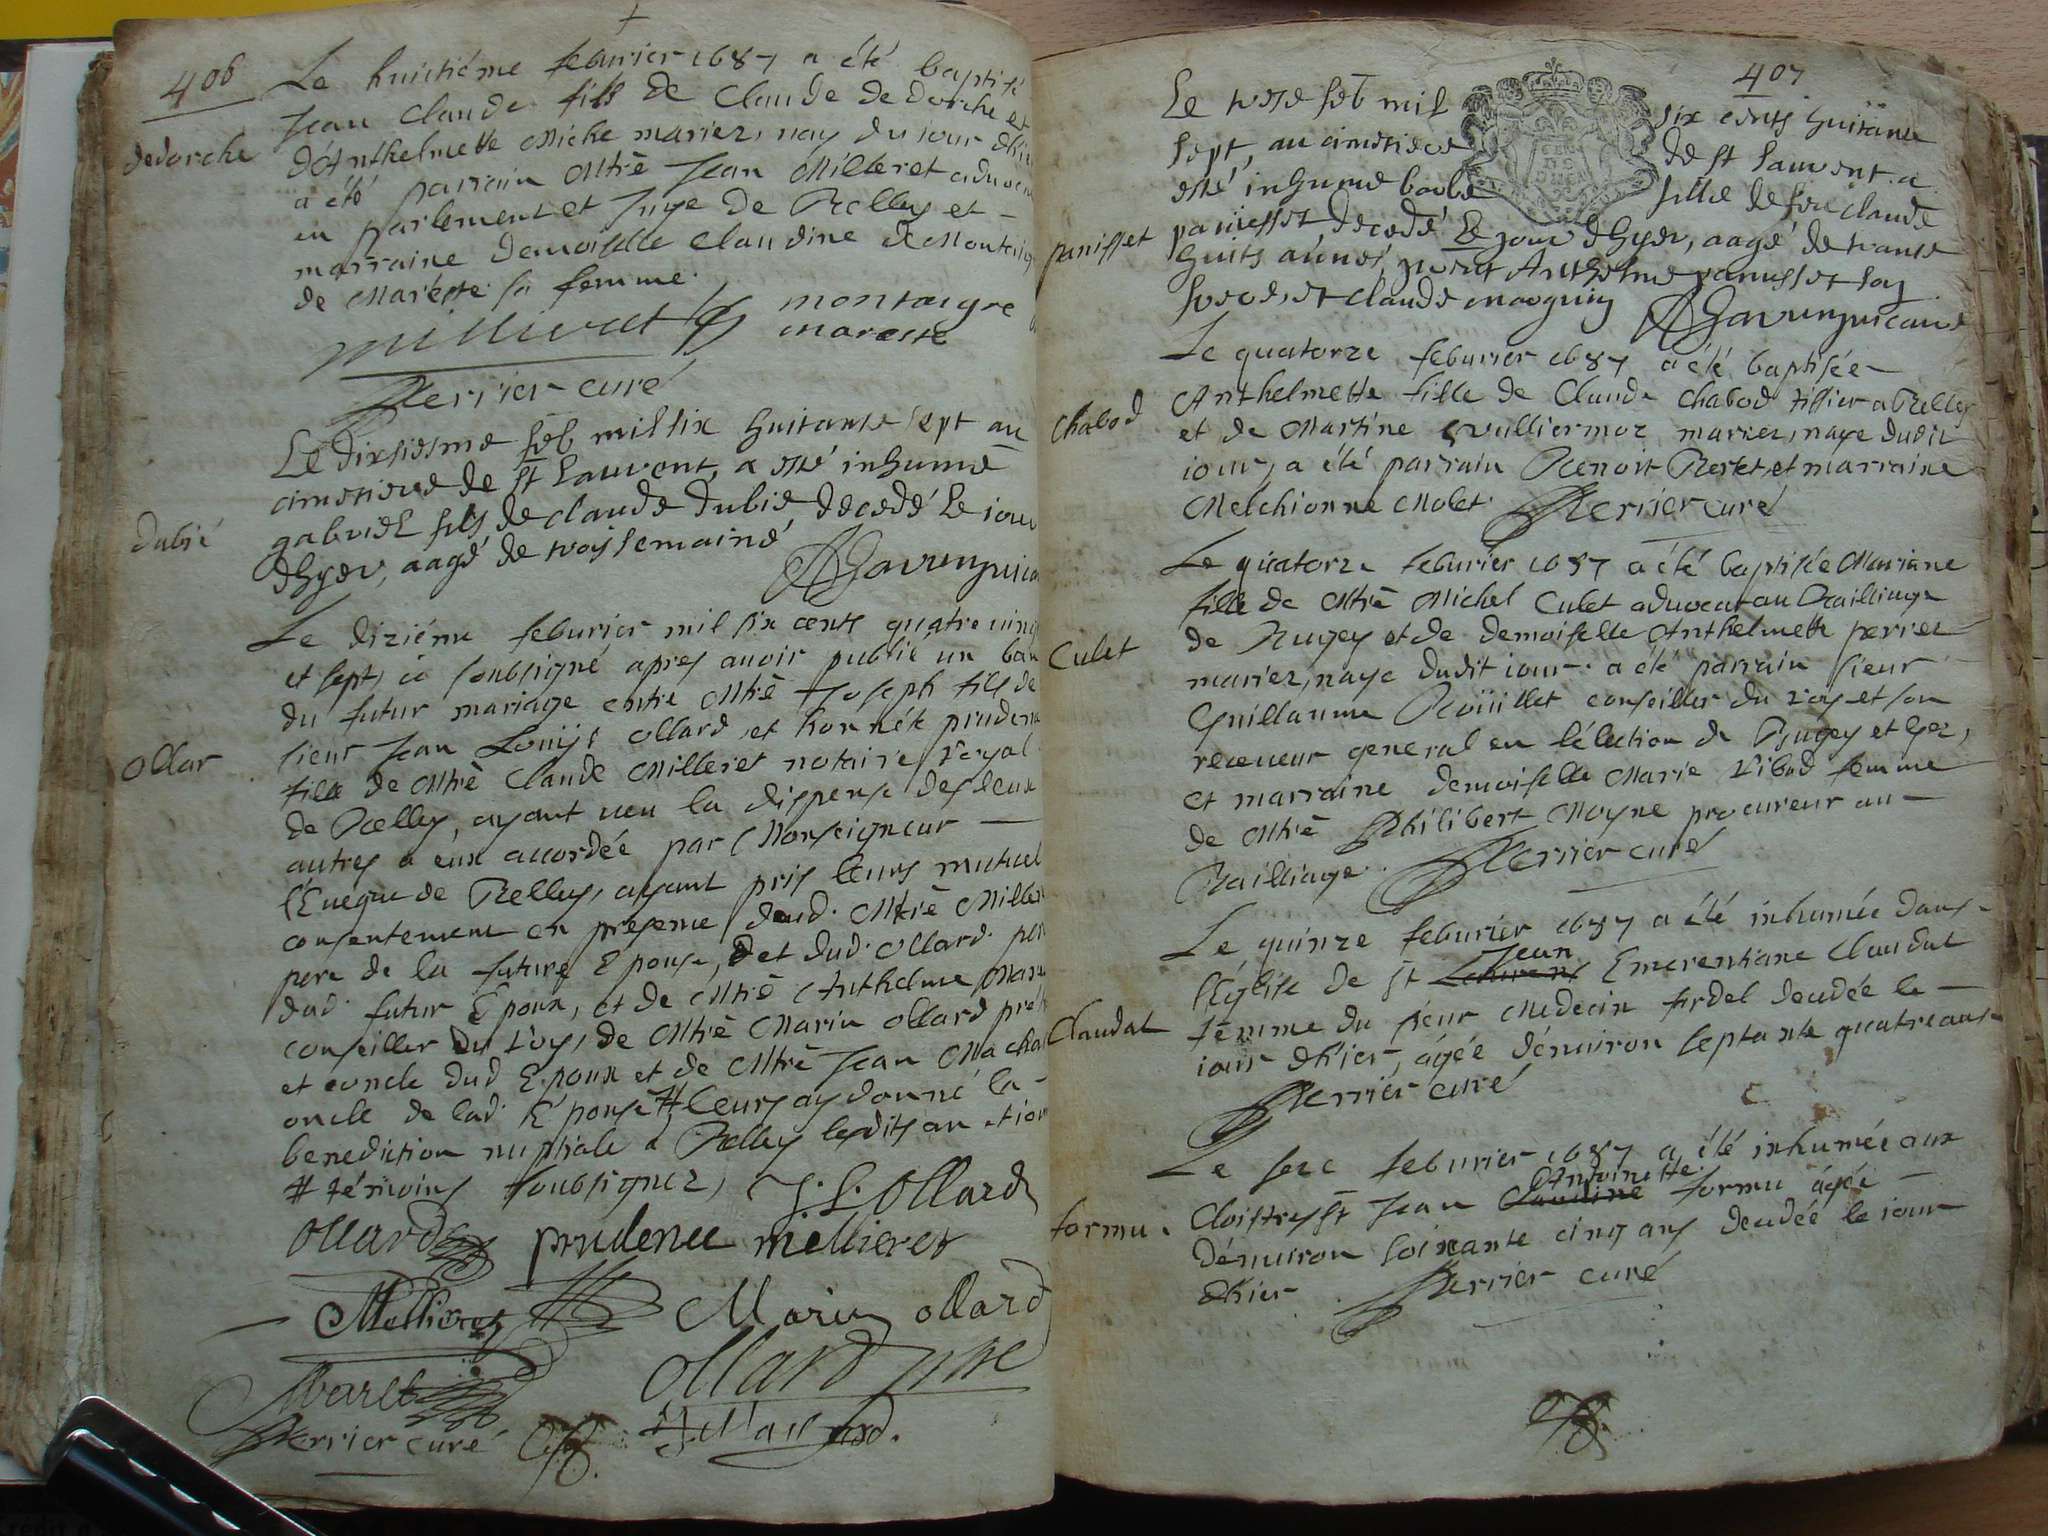 406
Le huictiéme feburier 1687 a été baptisé
Jean Claude fils de Claude de dorche et
dedorche
d'Anthelmette Miche mariez, nay du iour d'hier
a été parrain Mtrè Jean Milleret aduocat
en parlement et Juge de Belley et
marraine demoiselle Claudine de Montaig
de Mareste sa femme.
millieret montaigre
mareste
Perrier curé
Le dixsiesme feb mil six huitante sept au
cimetiere de st Laurent, a esté inhumé
dubié
gabriel fils de claude dubié decedé le iour
dhyer, aagé de trois semaine
Le diziéme feburier mil six cents quatre uing
et sept, ie soubsigné apres auoir publié un ban
du futur mariage entre Mtrè Joseph fils de
ollar
sieur Jean Louijs ollard et honnéte prudence
fille de Mtrè Claude Milleret notaire royal
de Belley, ayant ueu la dispense des deux
autres a eux accordée par Monseigneur
l'Eueque de Belley, ayant pris leurs mutuel
consentement en presence dud. Mtrè Miller
pere de la future Epouse, et dud. ollard. per
dud. futur Epoux, et de Mtrè Anthelme Mare
conseiller du roy, de Mtrè Marin ollard pre
et oncle dud Epoux et de Mtrè Jean Macha
oncle de lad. Epouse # leurs ay donné la
benediction nuptiale a Belley lesdits an et iour
# témoins soubsignez, J. L. Ollard
Ollard prudence mellieret
Mellieret Marin ollard
Maret ollard
Perrier curé
407
Le treze feb mil six cents huitante
sept, au cimetiere de st Laurent a
esté inhumé barbe fille de feu claude
panisset
panisset, decedé le jour dhyer, aagé de trante
huits années, present Anthelme panisset son
frere, et claude
Le quatorze feburier 1687 a été baptisée
Anthelmette fille de Claude Chabod tissier a Belley
Chabod
et de Martine Vulliermoz mariez, naye dudit
iour, a été parrain Benoit Bertet et marraine
Melchionne Molet. Perrier curé
Le quatorze feburier 1687 a été baptisée Mariane
fille de Mtrè Michel Culet aduocat au Bailliage
Culet
de Bugey et de demoiselle Anthelmette perrier
mariez, naye dudit iour. a été parrain sieur
Guillaume Boüillet conseiller du roy et son
receueur general en l'élection de Bugey et Gex,
et marraine demoiselle Marie ribod femme
de Mtrè Philibert Moyne procureur au
Bailliage. Perrier curé
Le quinze feburier 1687 a été inhumée dans
l'Eglise de st Laurent Jean Emerentiane Claudat
Claudat
femme du sieur Medecin fardel decedée le
iour d'hier, ágée d'enuiron septante quatre ans
Perrier curé
Le seze feburier 1687 a été inhumée aux
Cloistres st Jean Claudine Antoinette formu ágée
formu.
d'enuiron soixante cinq ans decedée le iour
d'hier Perrier curé